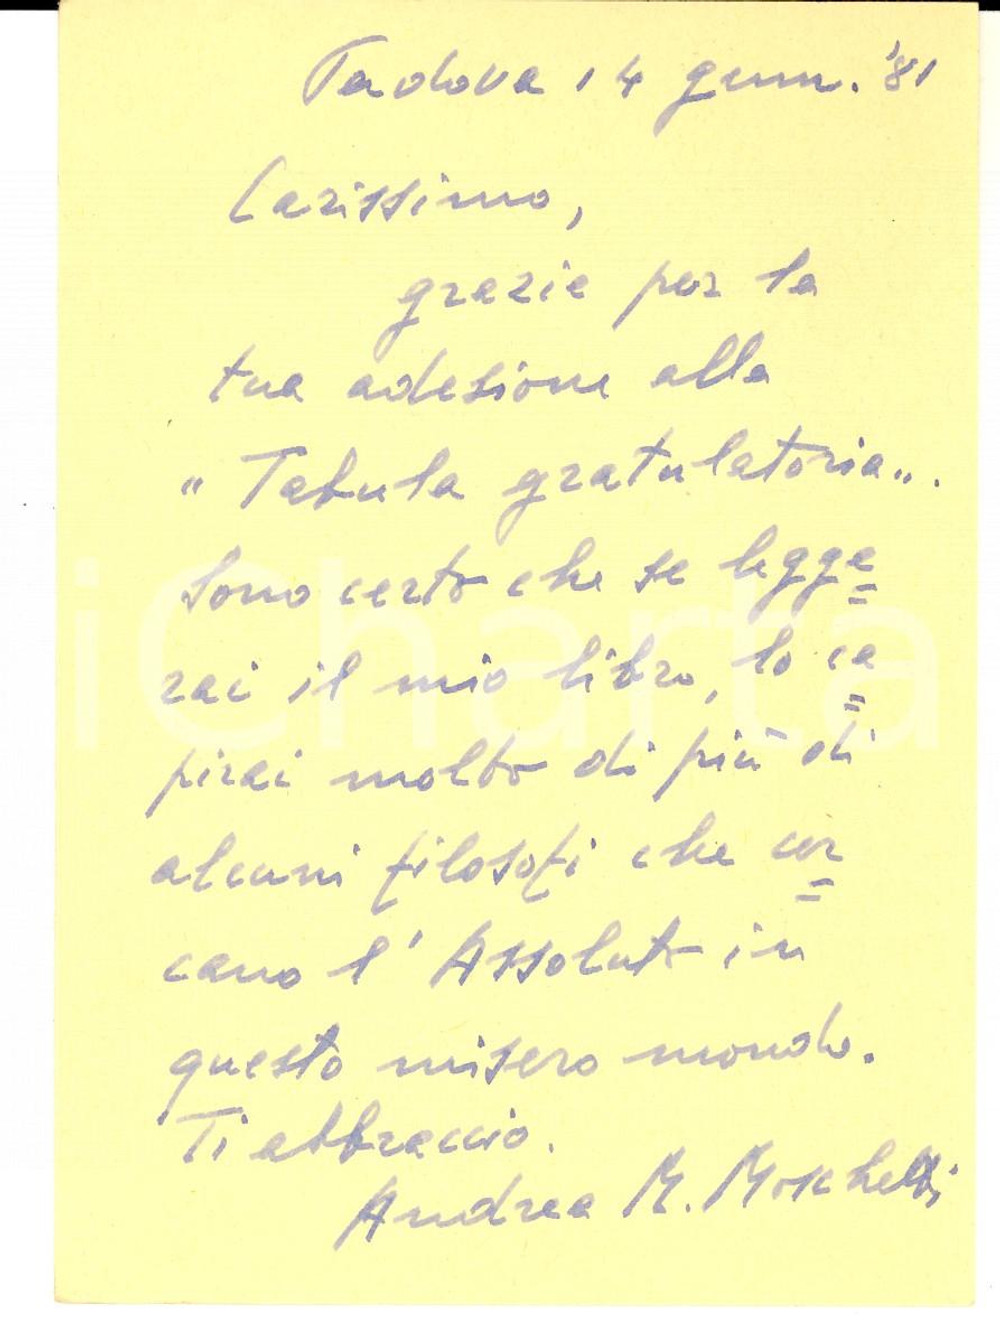 Padova 14 genn. '81
Carissimo,
grazie per la
tua adesione alla
"Tabula gratulatoria".
Sono certo che se legge=
rai il mio libro, lo ca=
pirai molto di più di
alcuni filosofi che cer=
cano l'Assoluto in
questo misero mondo.
Ti abbraccio.
Andrea M. Moschetti
iCharta